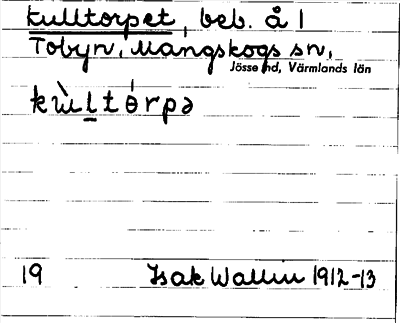 kulltorpet, beb. å 1
Tobyn, Mangskogs sn,
Jösse hd, Värmlands län
kùḻtórpə
19 Isak Wallin 1912-13